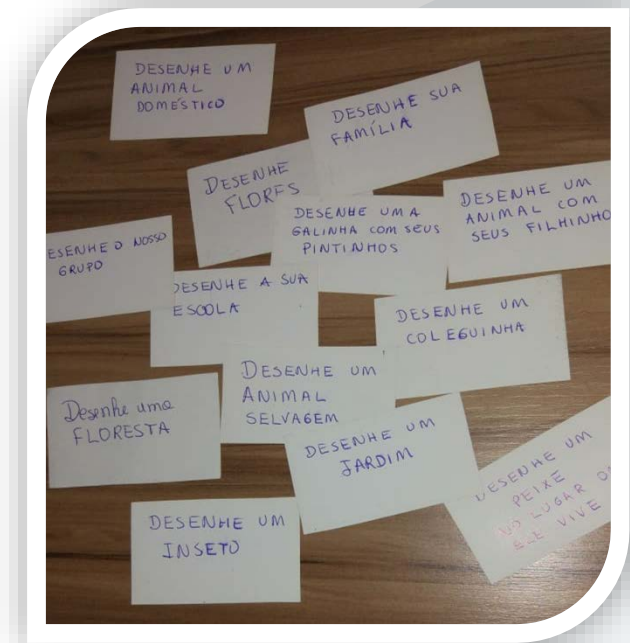 DESENHE UM
ANIMAL
DOMÉSTICO
DESENHE SUA
FAMÍLIA
DESENHE
FLORES
DESENHE UM
ANIMAL COM
SEUS FILHINHO
DESENHE UMA
GALINHA COM SEUS
PINTINHOS
ESENHE O NOSSO
GRUPO
DESENHE A SUA
ESCOLA
DESENHE UM
COLEGUINHA
DESENHE UM
ANIMAL
SELVAGEM
Desenhe uma
FLORESTA
DESENHE UM
JARDIM
DESENHE UM
PEIXE
NO LUGAR
ELE VIVE
DESENHE UM
INSETO